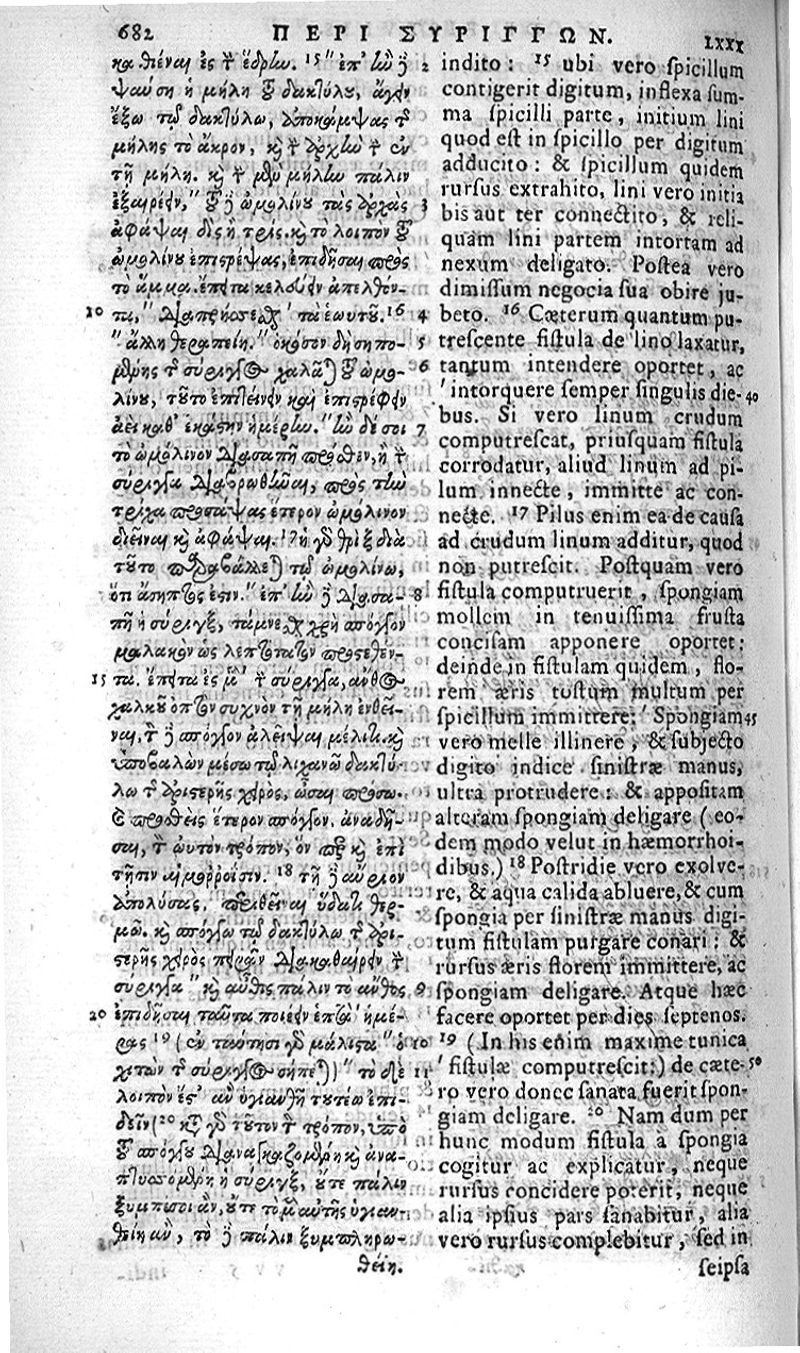 682 ΠΕΡΙ ΣΥΡΙΓΓΩΝ. LXXX
καθιέναι ἐς τὴν ἕδρην. 15 ἐπὴν δὲ 2
ψαύσῃ ἡ μήλη τοῦ δακτύλου, ἄγειν
ἔξω τῷ δακτύλῳ, ἀποκάμψας τῆς
μήλης τὸ ἄκρον, καὶ τὴν ἀρχὴν τὴν ἐν
τῇ μήλῃ. καὶ τὴν μὲν μήλην πάλιν
ἐξαιρέειν, τοῦ δὲ ὠμολίνου τὰς ἀρχὰς 3
ἀφάψαι δὶς ἢ τρὶς. καὶ τὸ λοιπὸν τοῦ
ὠμολίνου ἐπιστρέψας, ἐπιδῆσαι πρὸς
τὸ ἅμμα. ἔπειτα κελούειν ἀπελθόν-
10 τα, διαπρήσσεσθαι τὰ ἑωυτοῦ. 16 4
ἄλλη θεραπείη. ὁκόσον δὴ σηπο- 5
μένης τῆς σύριγγος χαλᾶται τοῦ ὠμο- 6
λίνου, τοῦτο ἐπιτείνειν καὶ ἐπιστρέφειν
ἀεὶ καθ' ἑκάστην ἡμέρην. ἢν δέ σοι 7
τὸ ὠμόλινον διασαπῇ πρόσθεν, ἢ τὴν
σύριγγα διαβρωθῆναι, πρὸς τὴν
τρίχα προσάψας ἕτερον ὠμόλινον
διεῖναι καὶ ἀφάψαι. 17 ἡ γὰρ θρὶξ διὰ
τοῦτο παραβάλλεται τῷ ὠμολίνῳ,
ὅτι ἄσηπτός ἐστιν. ἐπὴν δὲ διασα- 8
πῇ ἡ σύριγξ, τάμνεσθαι χρὴ σπόγγον
μαλακὸν ὡς λεπτότατον προσθέν-
15 τα. ἔπειτα ἐς μὲν τὴν σύριγγα, ἄνθος
χαλκοῦ ὀπτὸν συχνὸν τῇ μήλῃ ἐνθεῖ-
ναι, τὸν δὲ σπόγγον ἀλεῖψαι μέλιτι. καὶ
ὑποβαλὼν μέσῳ τῷ λιχανῷ δακτύ-
λῳ τῆς ἀριστερῆς χειρὸς, ὦσαι πρόσω.
καὶ προσθεὶς ἕτερον σπόγγον. ἀναδῆ-
σαι, τὸν ωὐτὸν τρόπον, ὃν περ καὶ ἐπὶ
τῇσιν αἱμοῤῥοΐσιν. 18 τῇ δὲ αὔριον
ἀπολύσας, περιθεῖναι ὕδατι θερ-
μῷ. καὶ σπόγγῳ τῷ δακτύλῳ τῆς ἀρι-
στερῆς χειρὸς πειρᾶν διακαθαίρειν τὴν
σύριγγα καὶ αὖθις πάλιν τὸ ἄνθος 9
20 ἐπιδῆσαι ταῦτα ποιέειν ἑπτὰ ἡμέ-
ρας 19 (ἐν ταύτῃσι γὰρ μάλιστα ὁ 10
χιτὼν τῆς σύριγγος σήπεται) τὸ δὲ 11
λοιπὸν ἔς τ' ἂν ὑγιανθῇ τουτέῳ ἐπι-
δεῖν (20 κατὰ γὰρ τοῦτον τὸν τρόπον, ὑπὸ
τοῦ σπόγγου διαναγκαζομένη καὶ ἀνα-
πτυσσομένη ἡ σύριγξ, οὔτε πάλιν
ξυμπίσοι ἂν, οὔτε τὸ μὲν αὐτῆς ὑγιαν-
θείη ἂν, τὸ δὲ πάλιν ξυμπληρω-
θείη.
indito: 15 ubi vero spicillum
contigerit digitum, inflexa sum-
ma spicilli parte, initium lini
quod est in spicillo per digitum
adducito: & spicillum quidem
rursus extrahito, lini vero initia
bis aut ter connectito, & reli-
quam lini partem intortam ad
nexum deligato. Postea vero
dimissum negocia sua obire ju-
beto. 16 Cæterum quantum pu-
trescente fistula de lino laxatur,
tantum intendere oportet, ac
intorquere semper singulis die- 40
bus. Si vero linum crudum
computrescat, priusquam fistula
corrodatur, aliud linum ad pi-
lum innecte, immitte ac con-
necte. 17 Pilus enim ea de causa
ad crudum linum additur, quod
non putrescit. Postquam vero
fistula computruerit, spongiam
mollem in tenuissima frusta
concisam apponere oportet:
deinde in fistulam quidem, flo-
rem æris tostum multum per
spicillum immittere: Spongiam 45
vero melle illinere, & subjecto
digito indice sinistræ manus,
ultra protrudere: & appositam
alteram spongiam deligare (eo-
dem modo velut in hæmorrhoi-
dibus.) 18 Postridie vero exolve-
re, & aqua calida abluere, & cum
spongia per sinistræ manus digi-
tum fistulam purgare conari: &
rursus æris florem immittere, ac
spongiam deligare. Atque hæc
facere oportet per dies septenos.
19 (In his enim maxime tunica
fistulæ computrescit:) de cæte- 50
ro vero donec sanata fuerit spon-
giam deligare. 20 Nam dum per
hunc modum fistula à spongia
cogitur ac explicatur, neque
rursus concidere poterit, neque
alia ipsius pars sanabitur, alia
vero rursus complebitur, sed in
seipsa